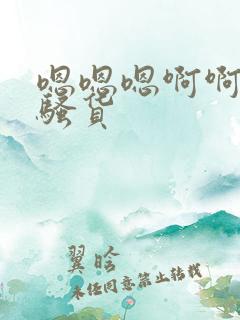 嗯嗯嗯啊啊
骚货
翼晗
未经同意禁止转载